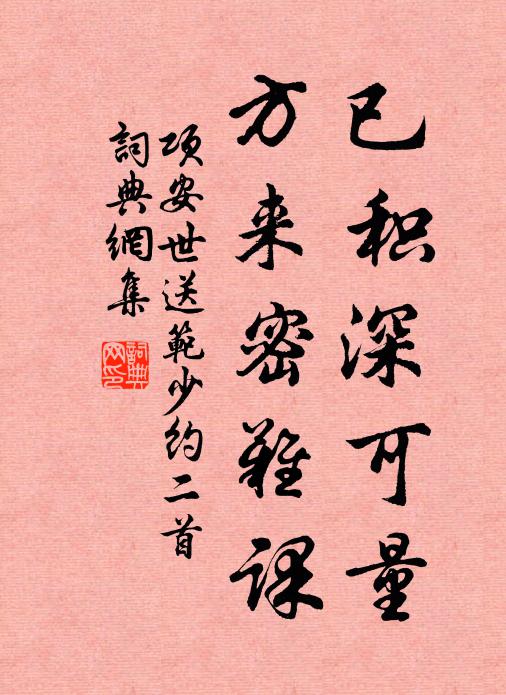 已积深可量
方来密难课
项安世送範少约二首
詞典網集
詞典網印